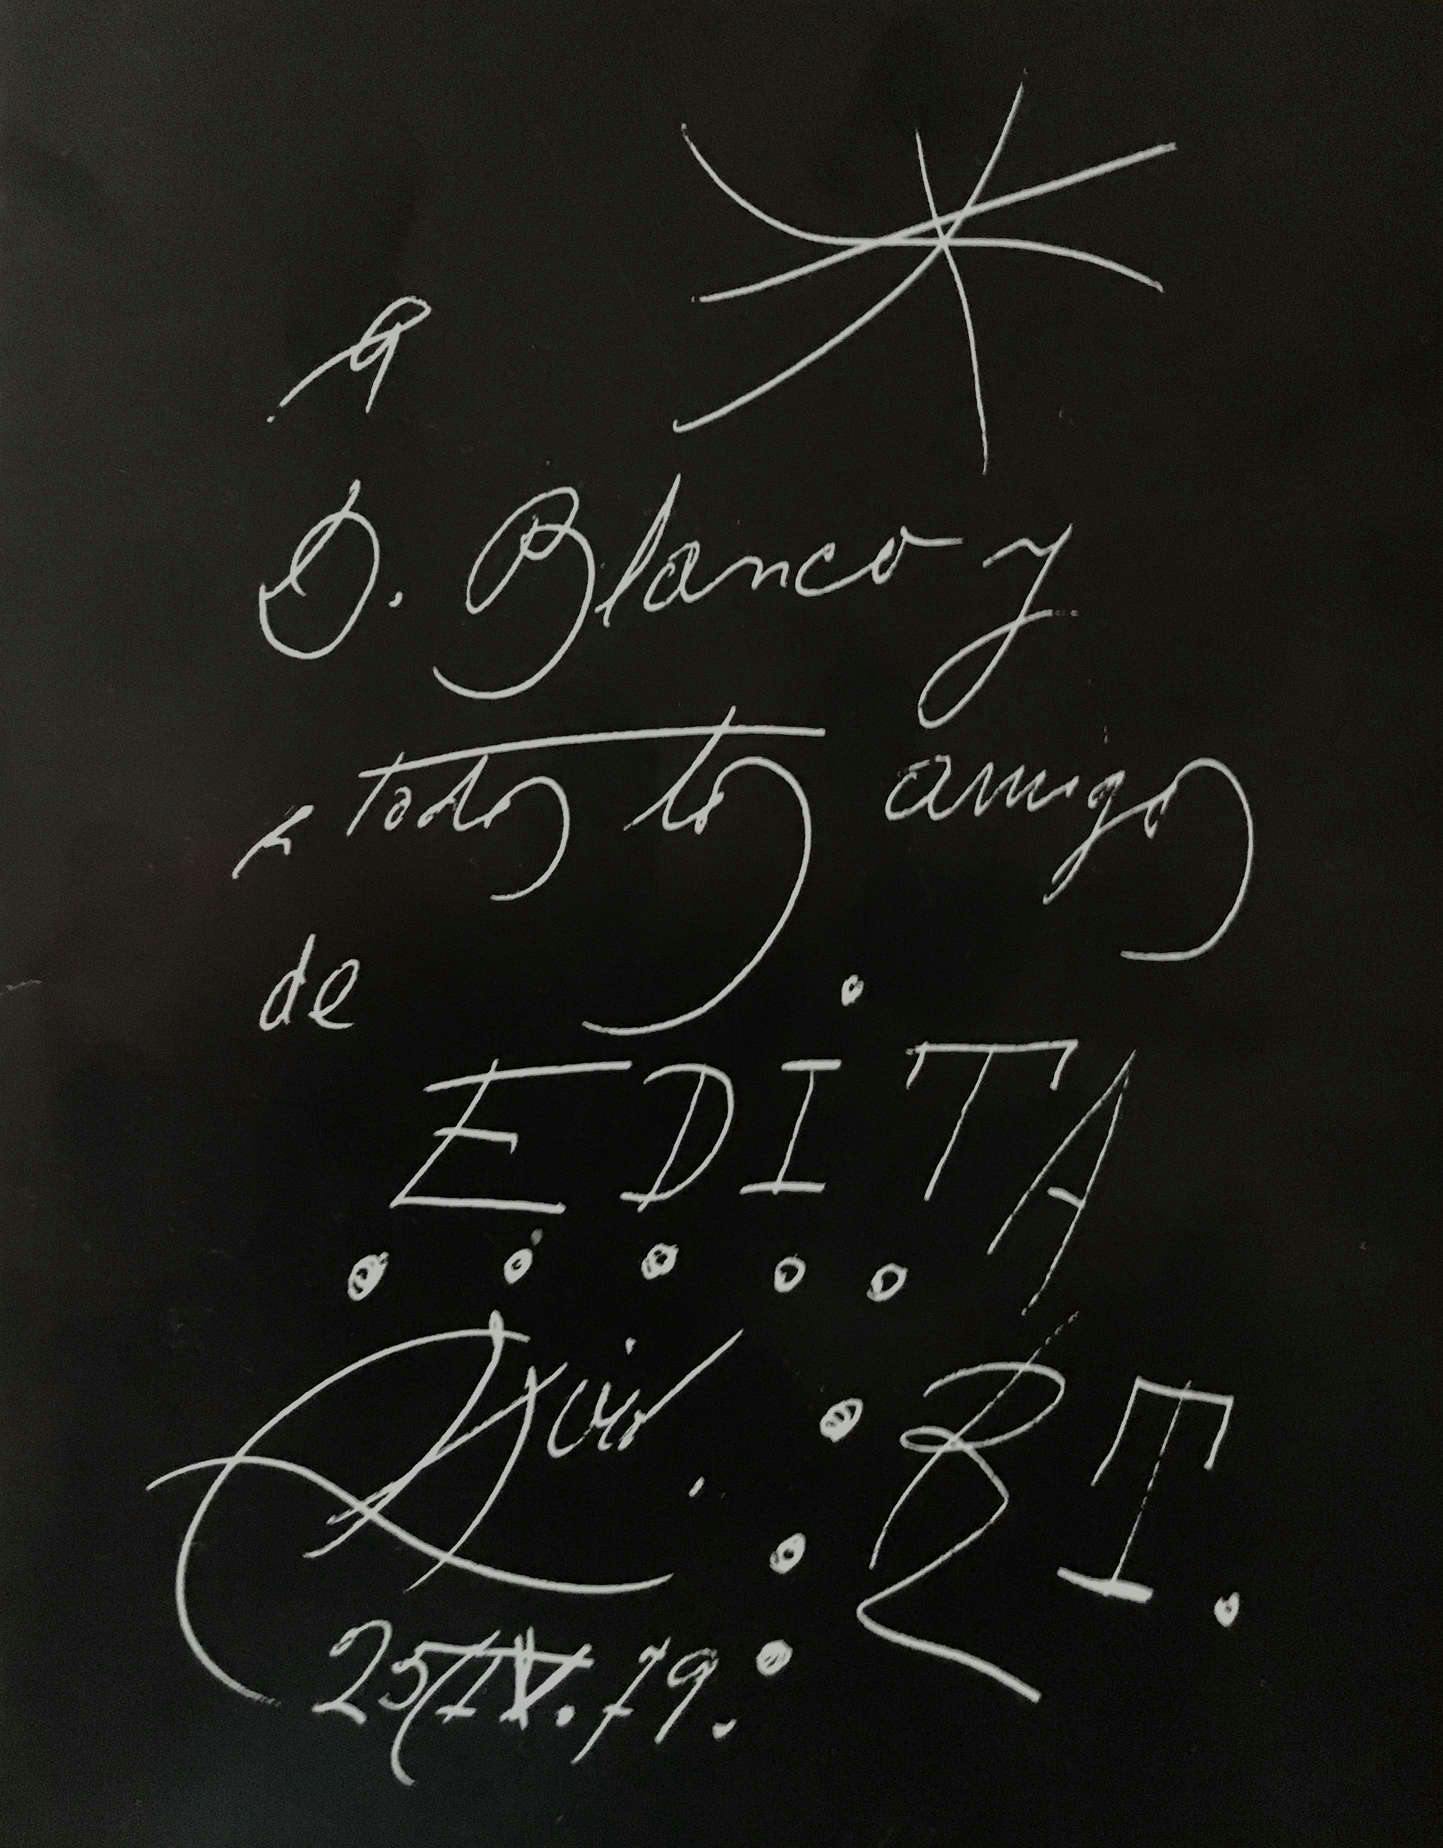 A
D. Blanco y
a todos los amigos
de
EDITA
R.T.
25/IV.79.